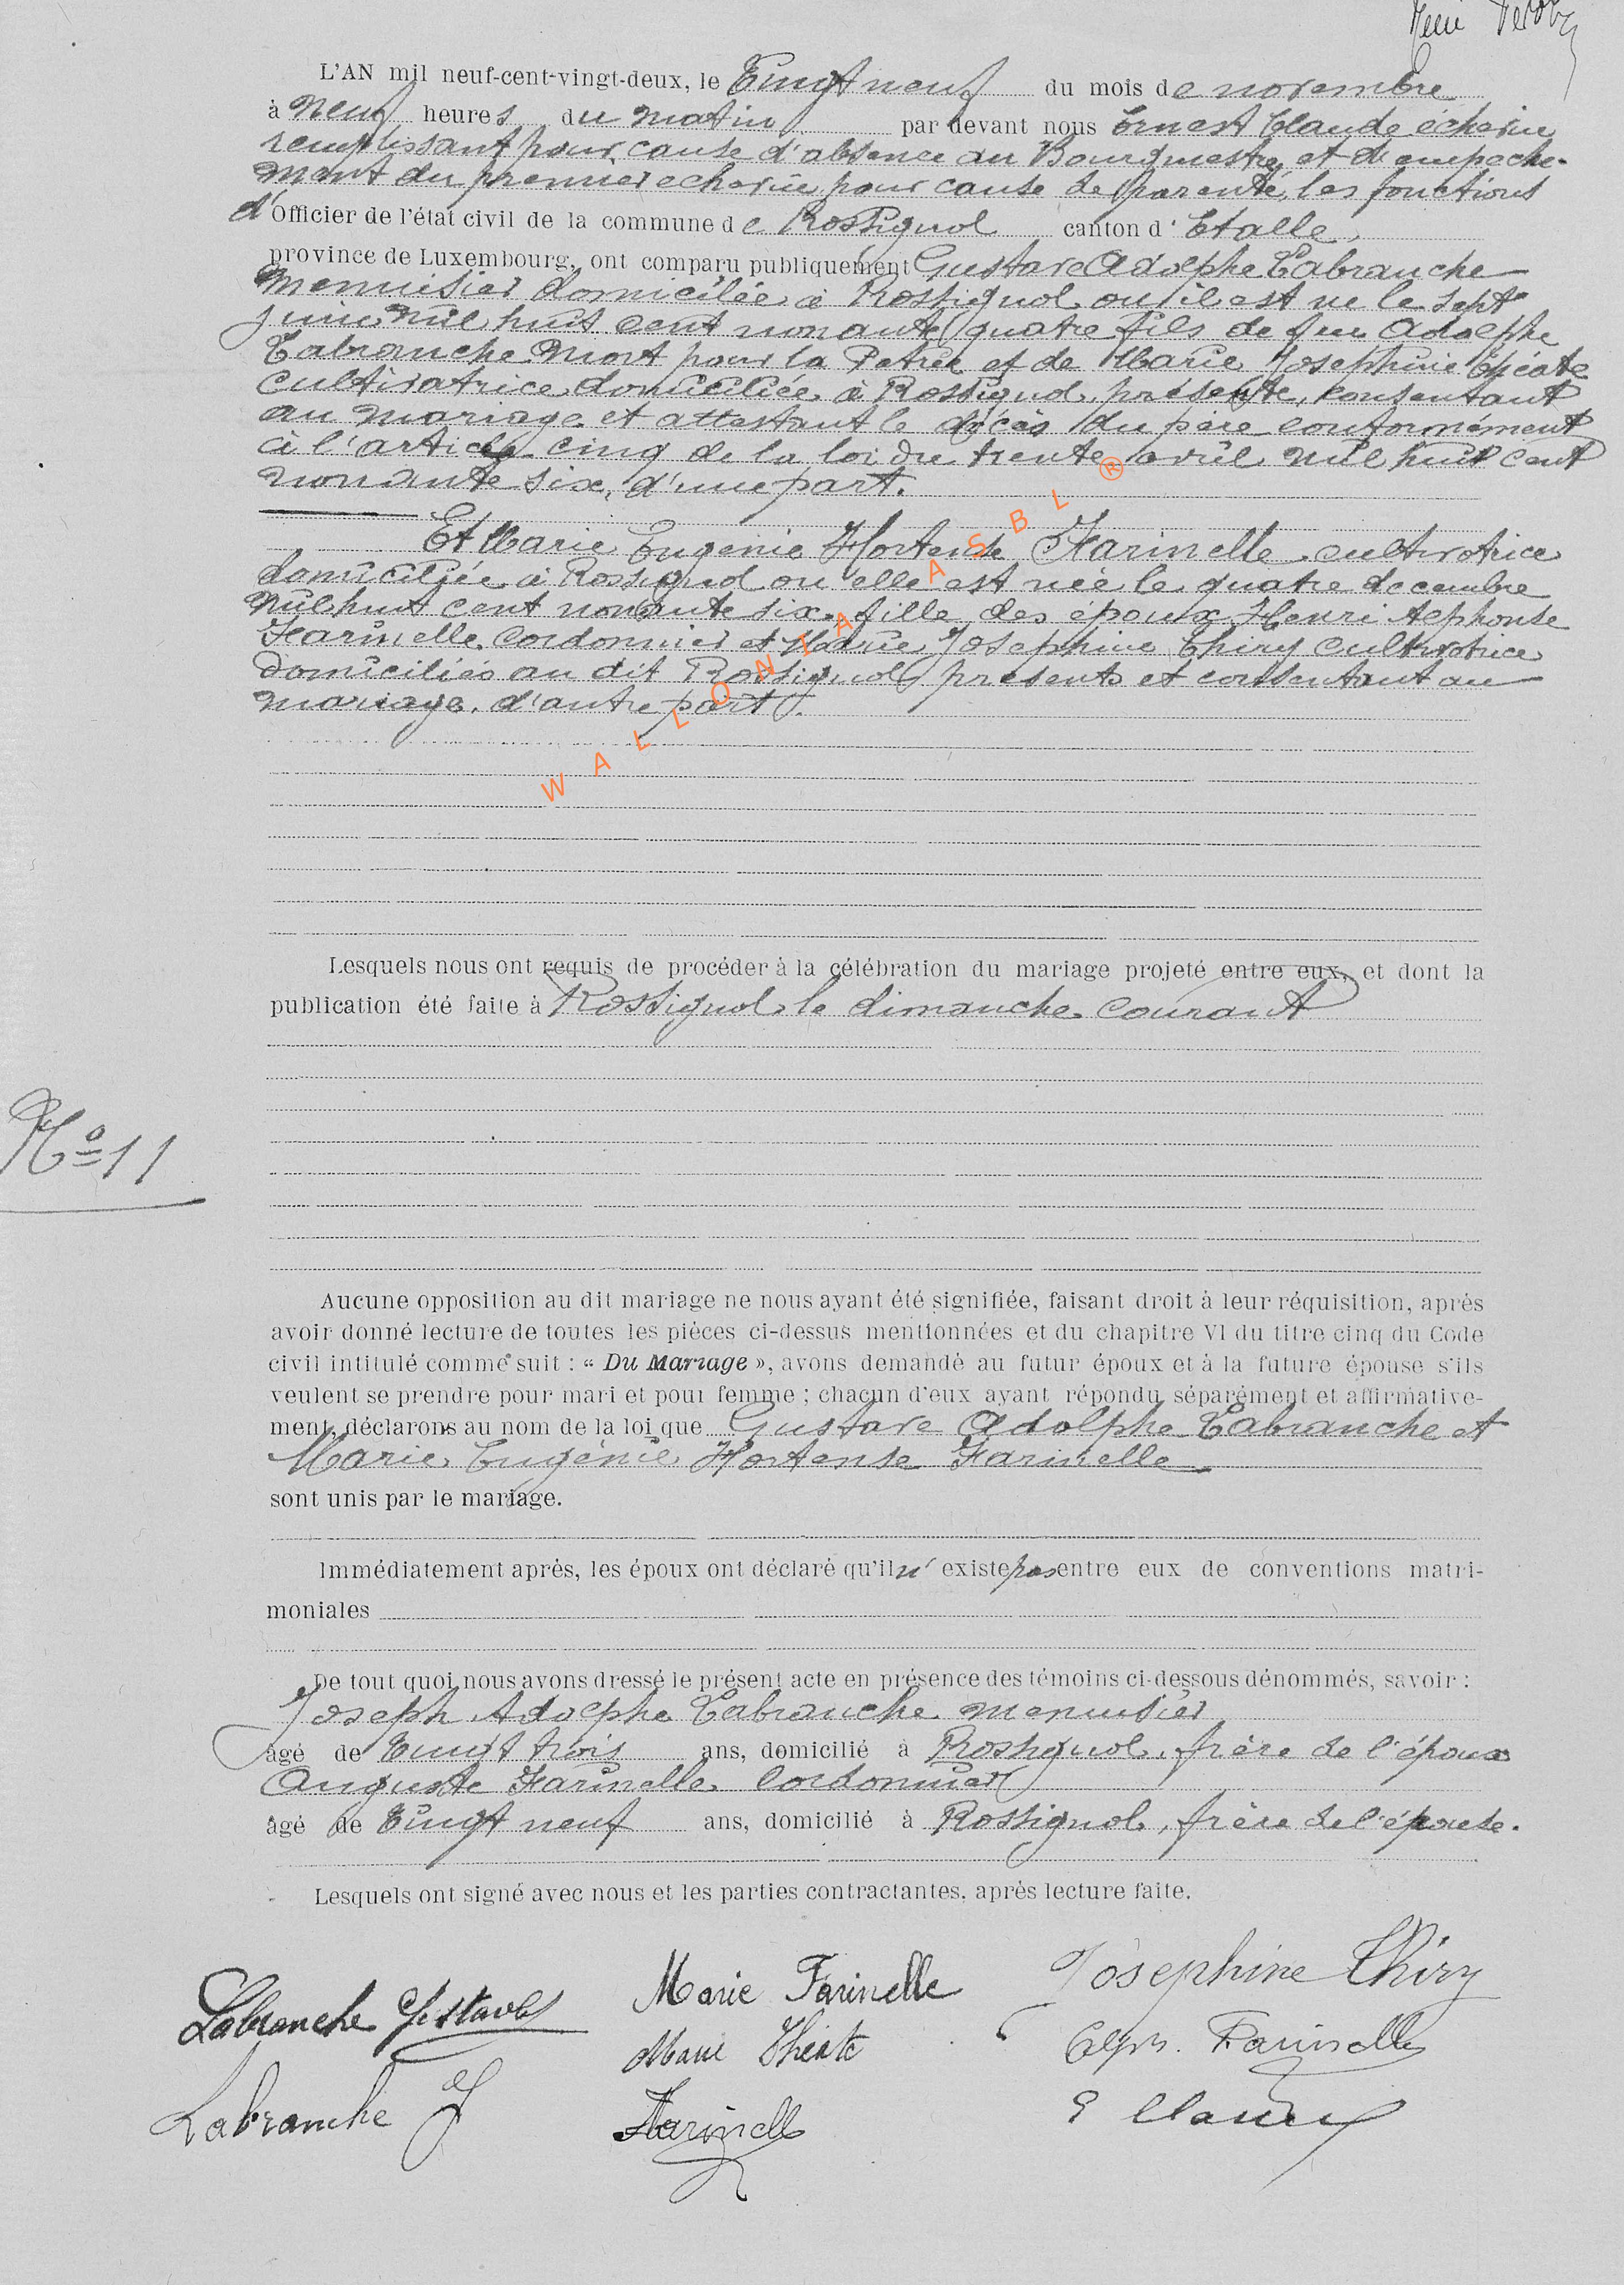 L'AN mil neuf-cent-vingt-deux, le Vingt neuf du mois de novembre
à neuf heures du matin par devant nous Ernest Claude échevin
remplissant pour cause d'absence du Bourgmestre et d'empeche-
ment du premier echevin pour cause de parenté, les fonctions
d'Officier de l'état civil de la commune de Rossignol canton d'Etalle,
province de Luxembourg, ont comparu publiquement Gustave Adolphe Labranche
menuisier domicilée à Rossignol ou il est né le sept
juin mil huit cent nonante quatre fils de feu Adolphe
Labranche mort pour la Patrie et de Marie Josephine
cultivatrice domiciliée à Rossignol, présente, consentant
au mariage et attestant le décès du père conformément
à l'article cinq de la loi du trente avril mil huit cent
nonante six, d'une part.
Et Marie Eugenie Hortense Farinelle cultivatrice
domiciliée à Rossignol ou elle est née le quatre decembre
mil huit cent nonante six, fille des époux Henri Alphonse
Farinelle, Cordonnier et Marie Josephine Thiry cultivatrice
domiciliés au dit Rossignol présents et consentant au
mariage, d'autre part.
WALLONIA ASBL ®
Lesquels nous ont requis de procéder à la célébration du mariage projeté entre eux, et dont la
publication été faite à Rossignol le dimanche courant
No 11
Aucune opposition au dit mariage ne nous ayant été signifiée, faisant droit à leur réquisition, après
avoir donné lecture de toutes les pièces ci-dessus mentionnées et du chapitre VI du titre cinq du Code
civil intitulé comme suit : « Du Mariage », avons demandé au futur époux et à la future épouse s'ils
veulent se prendre pour mari et pour femme ; chacun d'eux ayant répondu séparément et affirmative-
ment, déclarons au nom de la loi que Gustave Adolphe Labranche et
Marie Eugénie Hortense Farinelle
sont unis par le mariage.
Immédiatement après, les époux ont déclaré qu'il n'existe pas entre eux de conventions matri-
moniales
De tout quoi nous avons dressé le présent acte en présence des témoins ci-dessous dénommés, savoir :
Joseph Adolphe Labranche menuisier
âgé de Vingt trois ans, domicilié à Rossignol, frère de l'époux
Auguste Farinelle Cordonnier
âgé de Vingt neuf ans, domicilié à Rossignol, frère de l'épouse.
Lesquels ont signé avec nous et les parties contractantes, après lecture faite.
Labranche Gustave Marie Farinelle Josephine Thiry
Marie Alph. Farinelle
Labranche J Farinelle E Claude